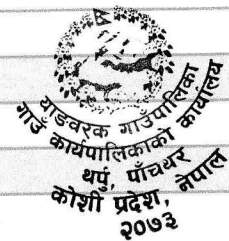 याङवरक गाउँपालिका
गाउँ कार्यपालिकाको कार्यालय
थर्पु, पाँचथर
कोशी प्रदेश, नेपाल
२०७३